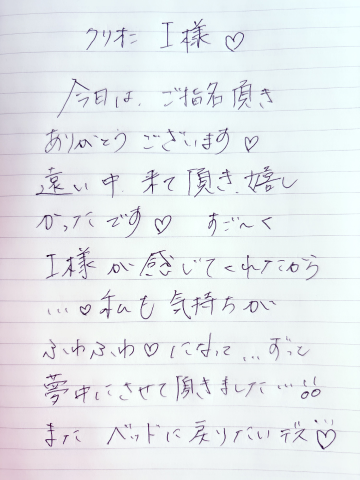 クリオネ I様♡
今日は、ご指名頂き
ありがとうございます♡
遠い中、来て頂き、嬉し
かったです♡ すご〜く
I様が感じてくれたから
...♡私も気持ちが
ふわふわ♡になって...ずっと
夢中にさせて頂きました...!!
また ベッドに戻りたいデス♡